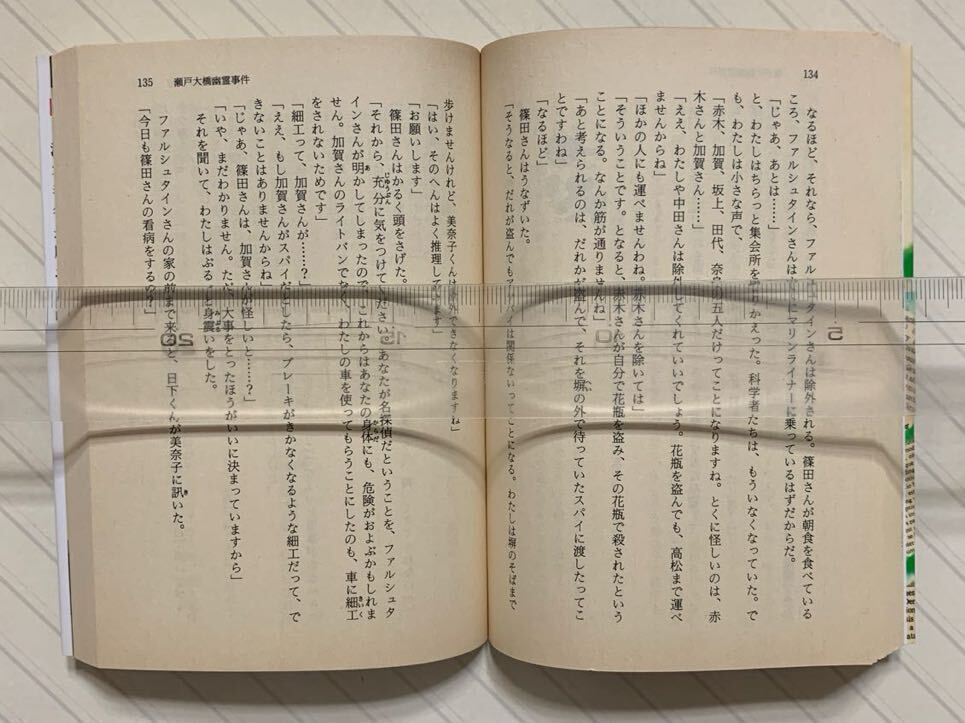 134
なるほど、それなら、ファルシュタインさんは除外される。篠田さんが朝食を食べている
ころ、ファルシュタインさんは にマリンライナーに乗っているはずだからだ。
「じゃあ、あとは……」
と、わたしはちらっと集会所を りかえった。科学者たちは、もういなくなっていた。で
も、わたしは小さな声で、
「赤木、加賀、坂上、田代、奈 五人だけってことになりますね。とくに怪しいのは、赤
木さんと加賀さん……」
「ええ、わたしや中田さんは除外してくれていいでしょう。花瓶を盗んでも、高松まで運べ
ませんからね」
「ほかの人にも運べませんわね。赤木さんを除いては」
「そういうことです。となると、赤木さんが自分で花瓶を盗み、その花瓶で殺されたという
ことになる。なんか筋が通りませんね」
「あと考えられるのは、だれかが盗んで、それを塀の外で待っていたスパイに渡したってこ
とですわね」
「なるほど」
篠田さんはうなずいた。
「そうなると、だれが盗んでもアリバイは関係ないってことになる。わたしは塀のそばまで
135 瀬戸大橋幽霊事件
歩けませんけれど、美奈子くんは除外できなくなりますね」
「はい、そのへんはよく推理しています」
「お願いします」
篠田さんはかるく頭をさげた。
「それから、充分に気をつけてください。あなたが名探偵だということを、ファルシュタ
インさんが明かしてしまったので、これからはあなたの身体にも、危険がおよぶかもしれま
せん。加賀さんのライトバンでなく、わたしの車を使ってもらうことにしたのも、車に細工
をされないためです」
「細工って、加賀さんが……?」
「ええ、もし加賀さんがスパイだとしたら、ブレーキがきかなくなるような細工だって、で
きないことはありませんからね」
「じゃあ、篠田さんは、加賀さんが怪しいと……?」
「いや、まだわかりません。ただ、大事をとったほうがいいに決まっていますから」
それを聞いて、わたしはぶるっと身震いをした。
ファルシュタインさんの家の前まで来ると、日下くんが美奈子に訊いた。
「今日も篠田さんの看病をするの?」
5
10
15
20